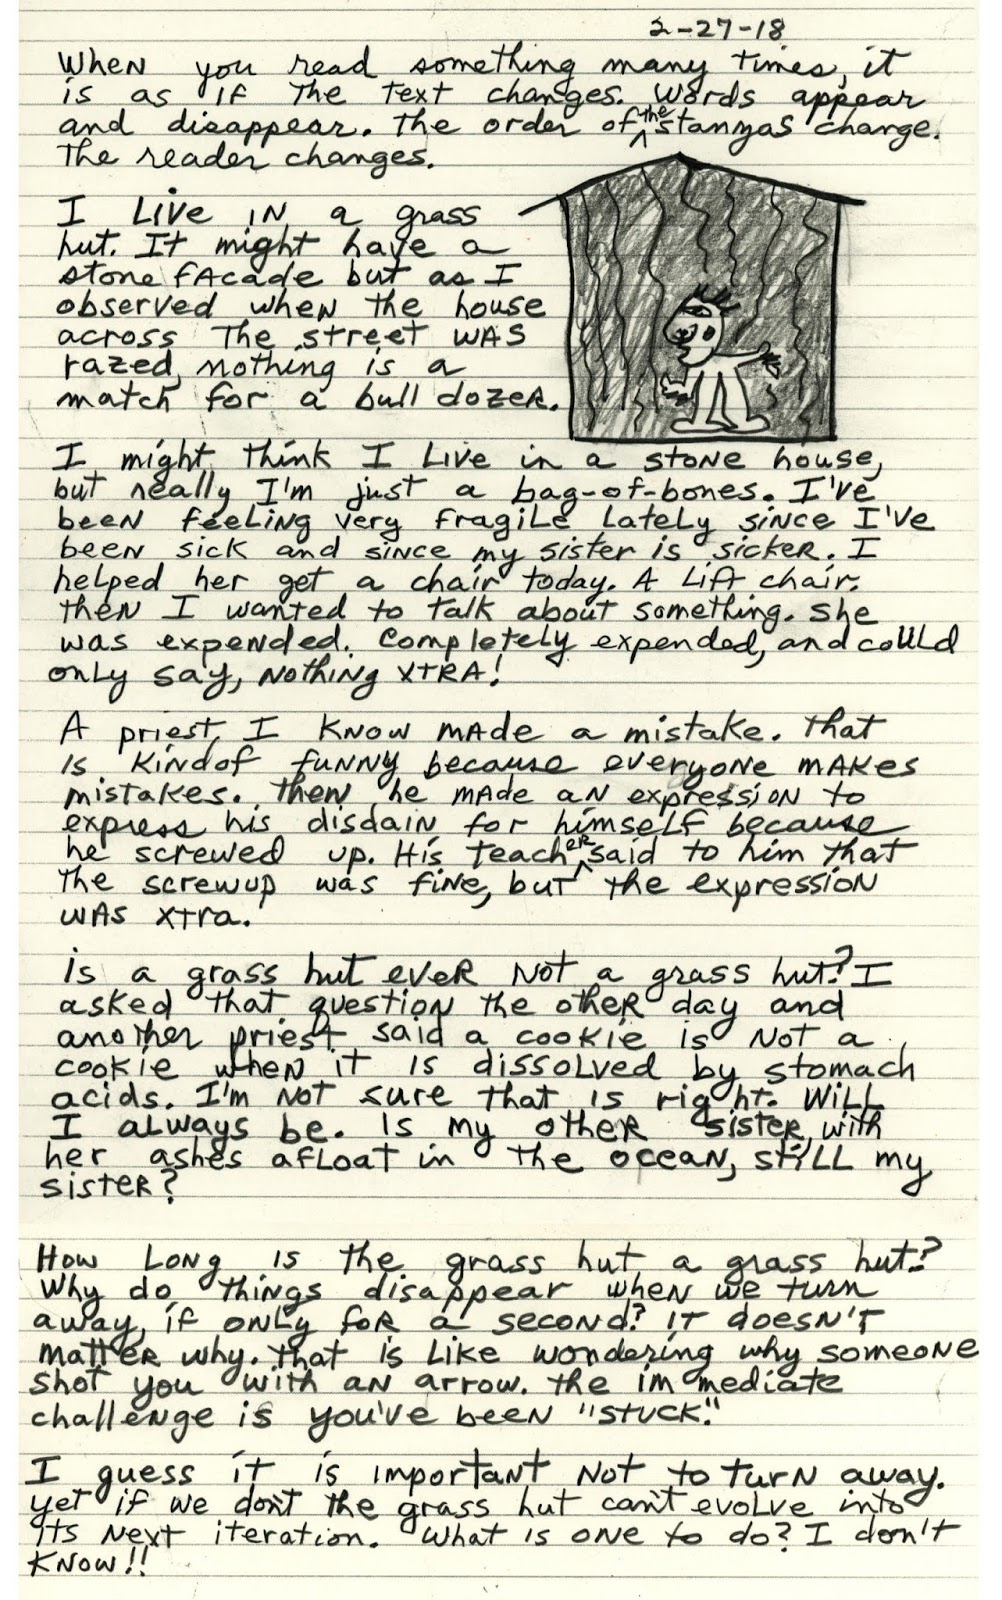 2-27-18
When you read something many times, it
is as if the text changes. Words appear
and disappear. The order of the stanzas change.
The reader changes.
I Live in a grass
hut. It might have a
stone facade but as I
observed when the house
across the street was
razed, nothing is a
match for a bull dozer.
I might think I Live in a stone house,
but really I'm just a bag-of-bones. I've
been feeling very fragile lately since I've
been sick and since my sister is sicker. I
helped her get a chair today. A Lift chair.
Then I wanted to talk about something. She
was expended. Completely expended, and could
only say, Nothing XTRA!
A priest I know made a mistake. That
is kindof funny because everyone makes
mistakes. Then he made an expression to
express his disdain for himself because
he screwed up. His teacher said to him that
the screwup was fine, but the expression
was xtra.
is a grass hut ever not a grass hut? I
asked that question the other day and
another priest said a cookie is not a
cookie when it is dissolved by stomach
acids. I'm not sure that is right. Will
I always be. Is my other sister, with
her ashes afloat in the ocean, still my
sister?
How Long is the grass hut a grass hut?
Why do things disappear when we turn
away, if only for a second? It doesn't
matter why. That is like wondering why someone
shot you with an arrow. The im mediate
challenge is you've been "stuck."
I guess it is important not to turn away.
yet if we don't the grass hut can't evolve into
its next iteration. What is one to do? I don't
know!!